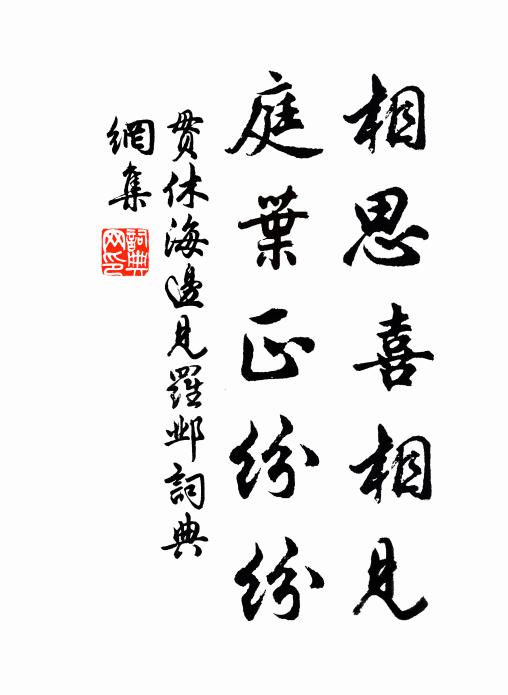 相思喜相見
庭葉正紛紛
貫休海邊見羅鄴詞典
網集
詞典網印